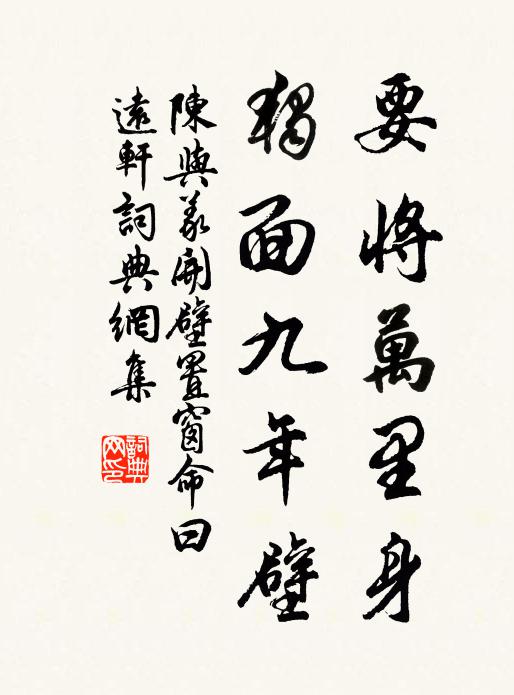 要將萬里身
獨面九年壁
陳與義開壁置窗命曰
遠軒詞典網集
詞典網印